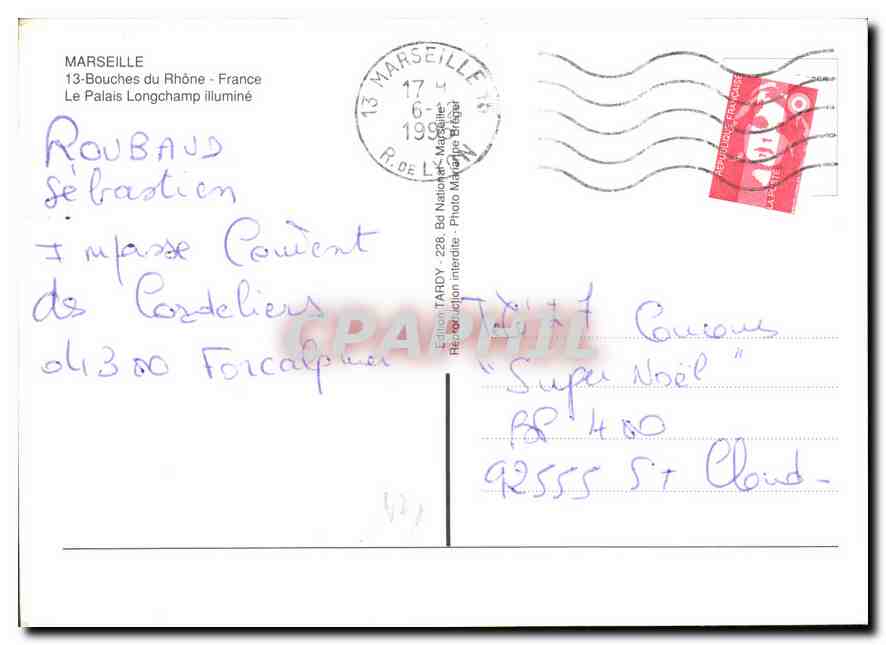 MARSEILLE
13-Bouches du Rhône - France
Le Palais Longchamp illuminé
13 MARSEILLE
17 H
6-
199
R. DE LYON
RÉPUBLIQUE FRANÇAISE
LA POSTE
ROUBAUD
Sébastien
Impasse Couvent
des Cordeliers
04300 Forcalquier
Edition TARDY - 228, Bd National - Marseille
Reproduction interdite - Photo Marianne Bréger
CPAPHIL
Télé 77 Concours
"Super Noël"
BP 400
92555 St Cloud